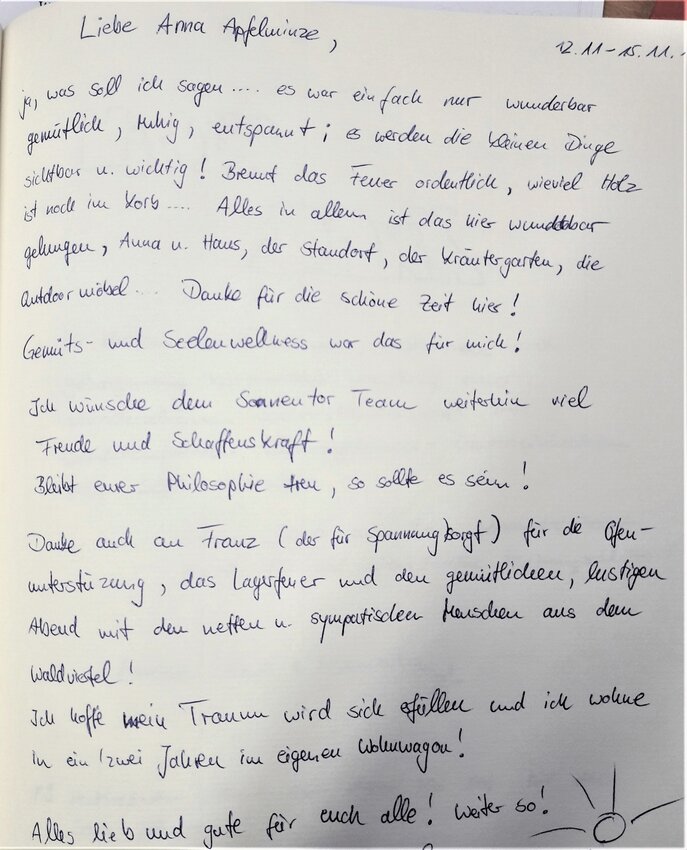 Liebe Anna Apfelminze,
12.11 – 15.11.
ja, was soll ich sagen .... es war einfach nur wunderbar
gemütlich, ruhig, entspannt; es werden die kleinen Dinge
sichtbar u. wichtig! Brennt das Feuer ordentlich, wieviel Holz
ist noch im Korb .... Alles in allem ist das hier wunderbar
gelungen, Anna u. Haus, der Standort, der Kräutergarten, die
Outdoormöbel ... Danke für die schöne Zeit hier!
Gemüts- und Seelenwellness war das für mich!
Ich wünsche dem Sonnentor Team weiterhin viel
Freude und Schaffenskraft!
Bleibt eurer Philosophie treu, so sollte es sein!
Danke auch an Franz (der für Spannung sorgt) für die Ofen-
unterstüzung, das Lagerfeuer und den gemütlichen, lustigen
Abend mit den netten u. sympatischen Menschen aus dem
Waldviertel!
Ich hoffe mein Traum wird sich efüllen und ich wohne
in ein/zwei Jahren im eigenen Wohnwagon!
Alles lieb und gute für euch alle! Weiter so!